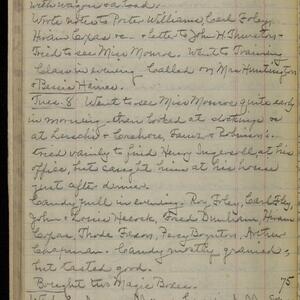 with wagon & a load.
Wrote notes to Porter Williams, Carl Foley,
Hiram & letter to John H. Thurston
Tried to see Miss Monroe. Went to Training
Class in evening. Called on Mrs Huntington
& Bessie Haines.
Tues. 8 Went to see Miss Monroe quite early
in morning, then looked at clothings
at & Robinson's.
Tried vainly to find Henry Ingersoll, at his
office, but caught him at his house
just after dinner.
Candy pull in evening. Roy Foley, Carl Foley,
John & Louise Fred Dunham, Hiram
Thode Percy Boynton, Arthur
Chapman. Candy mostly grained,
but tasted good.
Bought two Magic Boxes. 75